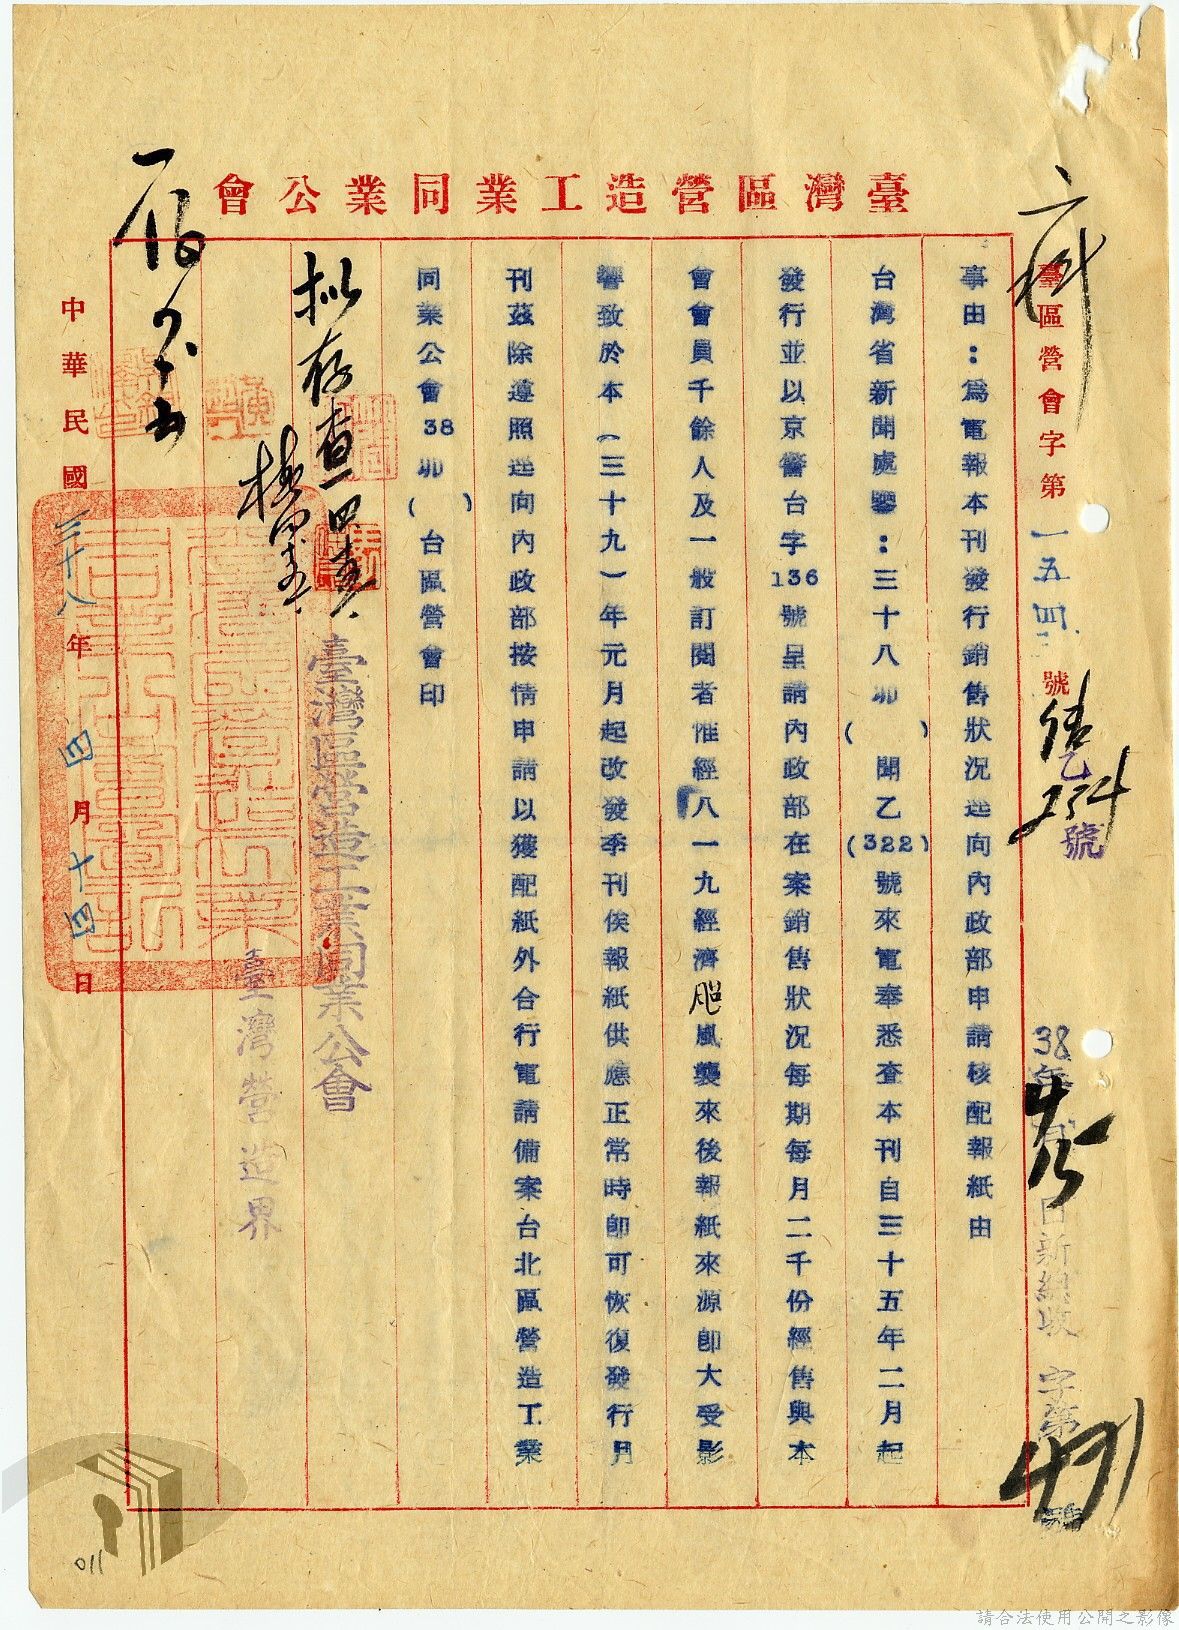 臺灣區營造工業同業公會
臺區營會字第一五四號
乙號
38年
日新總收 字第
事由：爲電報本刊發行銷售狀況逕向內政部申請核配報紙由
台灣省新聞處鑒：三十八卯（ ）聞乙(322)號來電奉悉查本刊自三十五年二月起
發行並以京警台字136號呈請內政部在案銷售狀況每期每月二千份經售與本
會會員千餘人及一般訂閱者惟經八一九經濟颱風襲來後報紙來源即大受影
響致於本（三十九）年元月起改發季刊俟報紙供應正常時即可恢復發行月
刊茲除遵照逕向內政部按情申請以獲配紙外合行電請備案台北區營造工業
同業公會38卯（ ）台區營會印
拟存查
臺灣區營造工業同業公會
臺灣營造界
中華民國三十八年四月十四日
011
請合法使用公開之影像